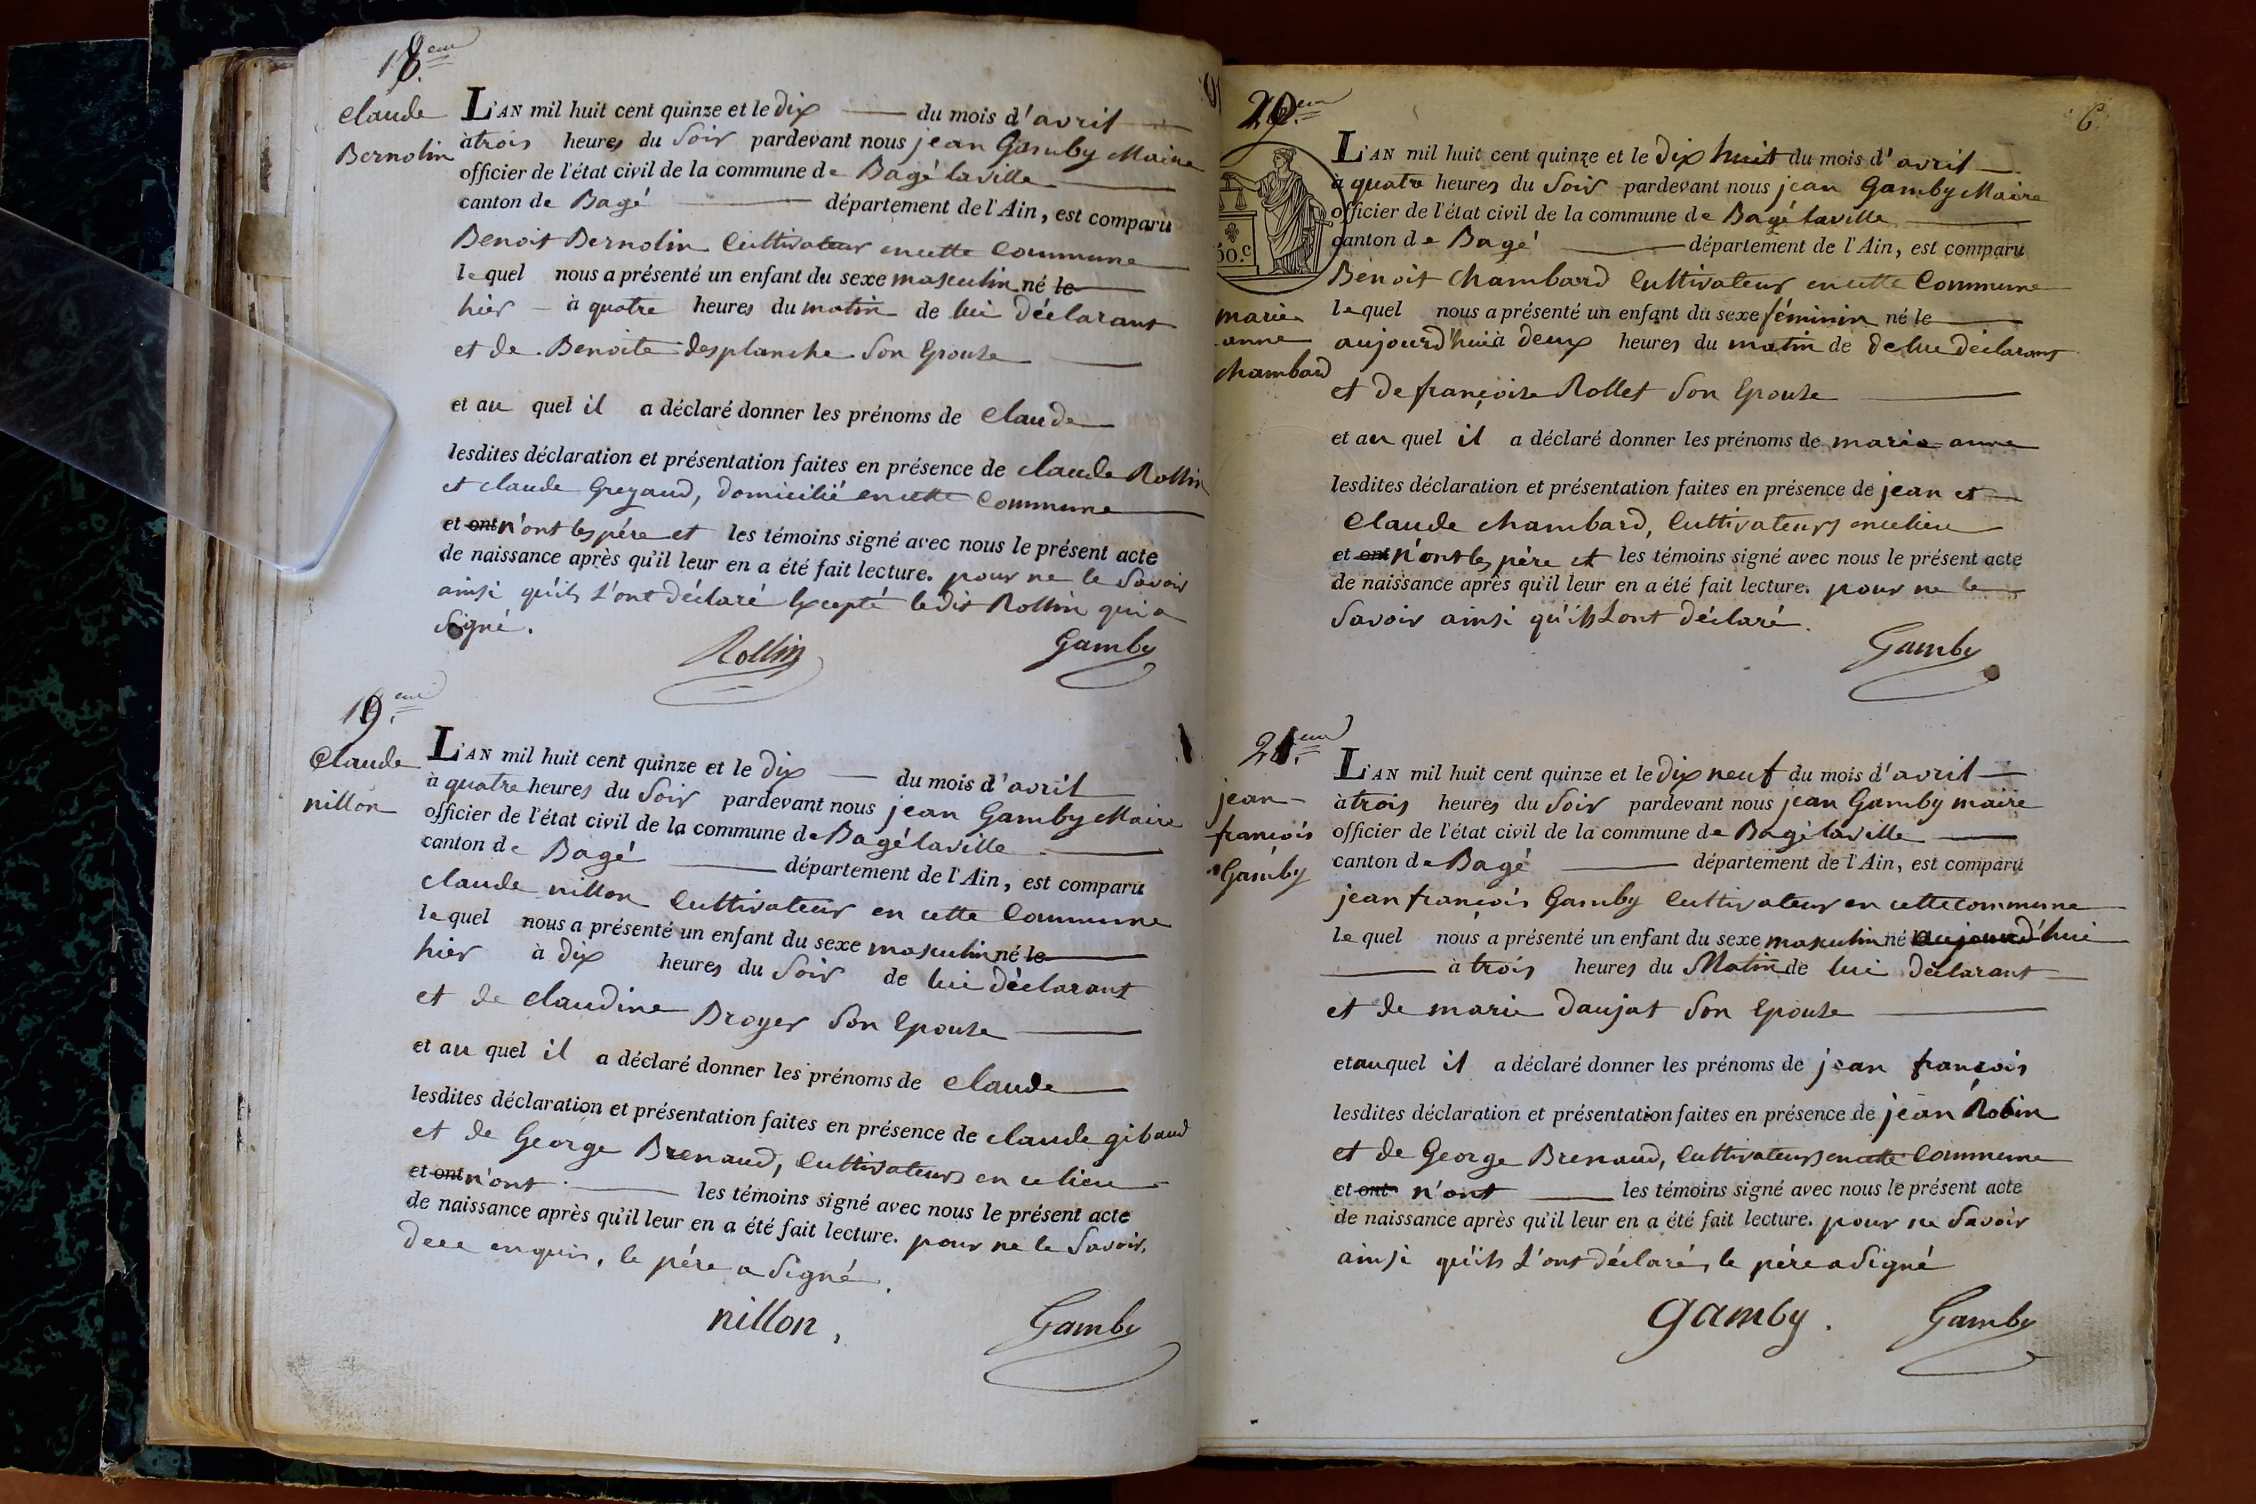 18.eme
Claude
Bernolin
L'AN mil huit cent quinze et le dix du mois d'avril
à trois heures du soir pardevant nous jean Gamby Maire
officier de l'état civil de la commune de Bagé laville
canton de Bagé département de l'Ain, est comparu
Benoit Bernolin Cultivateur en cette Commune
le quel nous a présenté un enfant du sexe masculin né le
hier à quatre heures du matin de lui déclarant
et de Benoite desplanche son Epouse
et au quel il a déclaré donner les prénoms de Claude
lesdites déclaration et présentation faites en présence de claude Rollin
et claude Greyaud, domicilié en cette Commune
et ont n'ont les père et les témoins signé avec nous le présent acte
de naissance après qu'il leur en a été fait lecture. pour ne le savoir
ainsi qu'ils l'ont déclaré Excepté le dit Rollin qui a
signé.
Rollin Gamby
19.eme
Claude
nillon
L'AN mil huit cent quinze et le dix du mois d'avril
à quatre heures du soir pardevant nous jean Gamby Maire
officier de l'état civil de la commune de Bagé laville
canton de Bagé département de l'Ain, est comparu
claude nillon Cultivateur en cette Commune
le quel nous a présenté un enfant du sexe masculin né le
hier à dix heures du soir de lui déclarant
et de claudine Broyer son Epouse
et au quel il a déclaré donner les prénoms de Claude
lesdites déclaration et présentation faites en présence de claude gibaud
et de George Brenaud, Cultivateurs en ce lieu
et ont n'ont les témoins signé avec nous le présent acte
de naissance après qu'il leur en a été fait lecture. pour ne le savoir,
de ce enquis, le père a signé.
nillon, Gamby
20.eme
6
50.c
marie
anne
chambard
L'AN mil huit cent quinze et le dix huit du mois d'avril
à quatre heures du soir pardevant nous jean Gamby Maire
officier de l'état civil de la commune de Bagé laville
canton de Bagé département de l'Ain, est comparu
Benoit chambard Cultivateur en cette Commune
le quel nous a présenté un enfant du sexe féminin né le
aujourd'hui à deux heures du matin de de lui déclarant
et de françoise Rollet son Epouse
et au quel il a déclaré donner les prénoms de marie anne
lesdites déclaration et présentation faites en présence de jean et
Claude chambard, Cultivateurs en ce lieu
et ont n'ont les père et les témoins signé avec nous le présent acte
de naissance après qu'il leur en a été fait lecture. pour ne le
savoir ainsi qu'ils l'ont déclaré.
Gamby
21.eme
jean
françois
Gamby
L'AN mil huit cent quinze et le dix neuf du mois d'avril
à trois heures du soir pardevant nous jean Gamby maire
officier de l'état civil de la commune de Bagé laville
canton de Bagé département de l'Ain, est comparu
jean françois Gamby Cultivateur en cette commune
le quel nous a présenté un enfant du sexe masculin né aujourd'hui
à trois heures du Matin de lui déclarant
et de marie daujat son Epouse
et au quel il a déclaré donner les prénoms de jean françois
lesdites déclaration et présentation faites en présence de jean Robin
et de George Brenaud, Cultivateurs en cette Commune
et ont n'ont les témoins signé avec nous le présent acte
de naissance après qu'il leur en a été fait lecture. pour ne savoir
ainsi qu'ils l'ont déclaré, le père a signé
gamby. Gamby